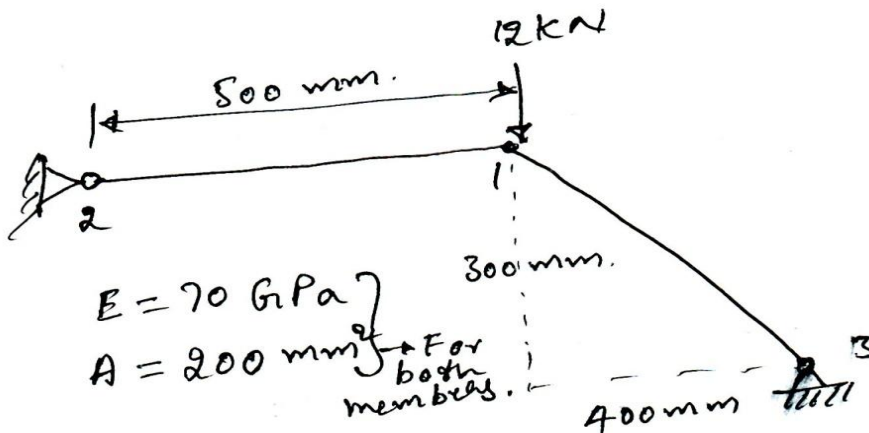 12KN
500 mm.
2
1
300mm.
E = 70 GPa
A = 200 mm² → For both members.
3
400mm